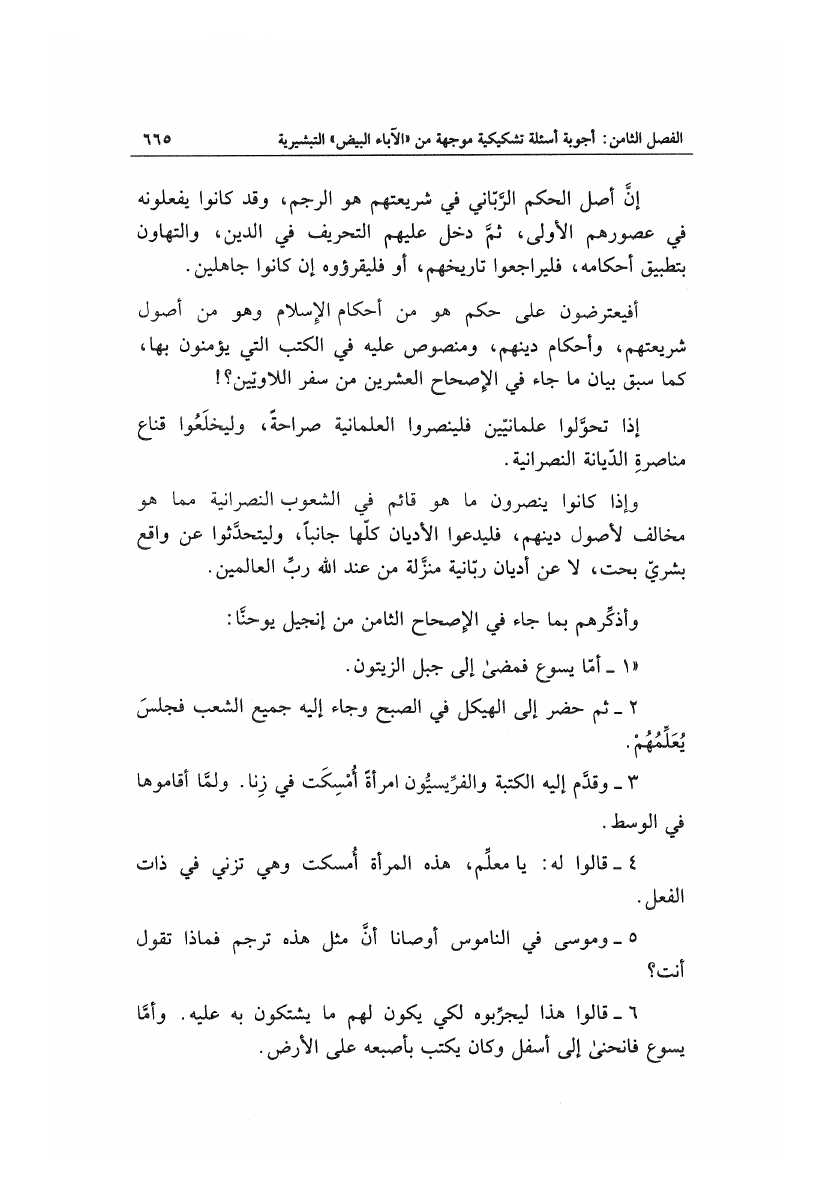 الفصل الثامن: أجوبة أسئلة تشكيكية موجهة من «الآباء البيض» التبشيرية ٦٦٥
إنَّ أصل الحكم الرَّبّاني في شريعتهم هو الرجم، وقد كانوا يفعلونه
في عصورهم الأولى، ثمَّ دخل عليهم التحريف في الدين، والتهاون
بتطبيق أحكامه، فليراجعوا تاريخهم، أو فليقرؤوه إن كانوا جاهلين.
أفيعترضون على حكم هو من أحكام الإسلام وهو من أصول
شريعتهم، وأحكام دينهم، ومنصوص عليه في الكتب التي يؤمنون بها،
كما سبق بيان ما جاء في الإصحاح العشرين من سفر اللاويّين؟!
إذا تحوَّلوا علمانيّين فلينصروا العلمانية صراحةً، وليخلَعُوا قناع
مناصرةِ الدّيانة النصرانية.
وإذا كانوا ينصرون ما هو قائم في الشعوب النصرانية مما هو
مخالف لأصول دينهم، فليدعوا الأديان كلّها جانباً، وليتحدَّثوا عن واقع
بشريّ بحت، لا عن أديان ربّانية منزَّلة من عند الله ربِّ العالمين.
وأذكِّرهم بما جاء في الإصحاح الثامن من إنجيل يوحنَّا:
«١ ـ أمّا يسوع فمضىٰ إلى جبل الزيتون.
٢ ـ ثم حضر إلى الهيكل في الصبح وجاء إليه جميع الشعب فجلسَ
يُعَلِّمُهُمْ.
٣ ـ وقدَّم إليه الكتبة والفرِّيسيُّون امرأةً أُمْسِكَت في زِنا. ولمَّا أقاموها
في الوسط.
٤ ـ قالوا له: يا معلِّم، هذه المرأة أُمسكت وهي تزني في ذات
الفعل.
٥ ـ وموسى في الناموس أوصانا أنَّ مثل هذه ترجم فماذا تقول
أنت؟
٦ ـ قالوا هذا ليجرِّبوه لكي يكون لهم ما يشتكون به عليه. وأمَّا
يسوع فانحنىٰ إلى أسفل وكان يكتب بأصبعه على الأرض.